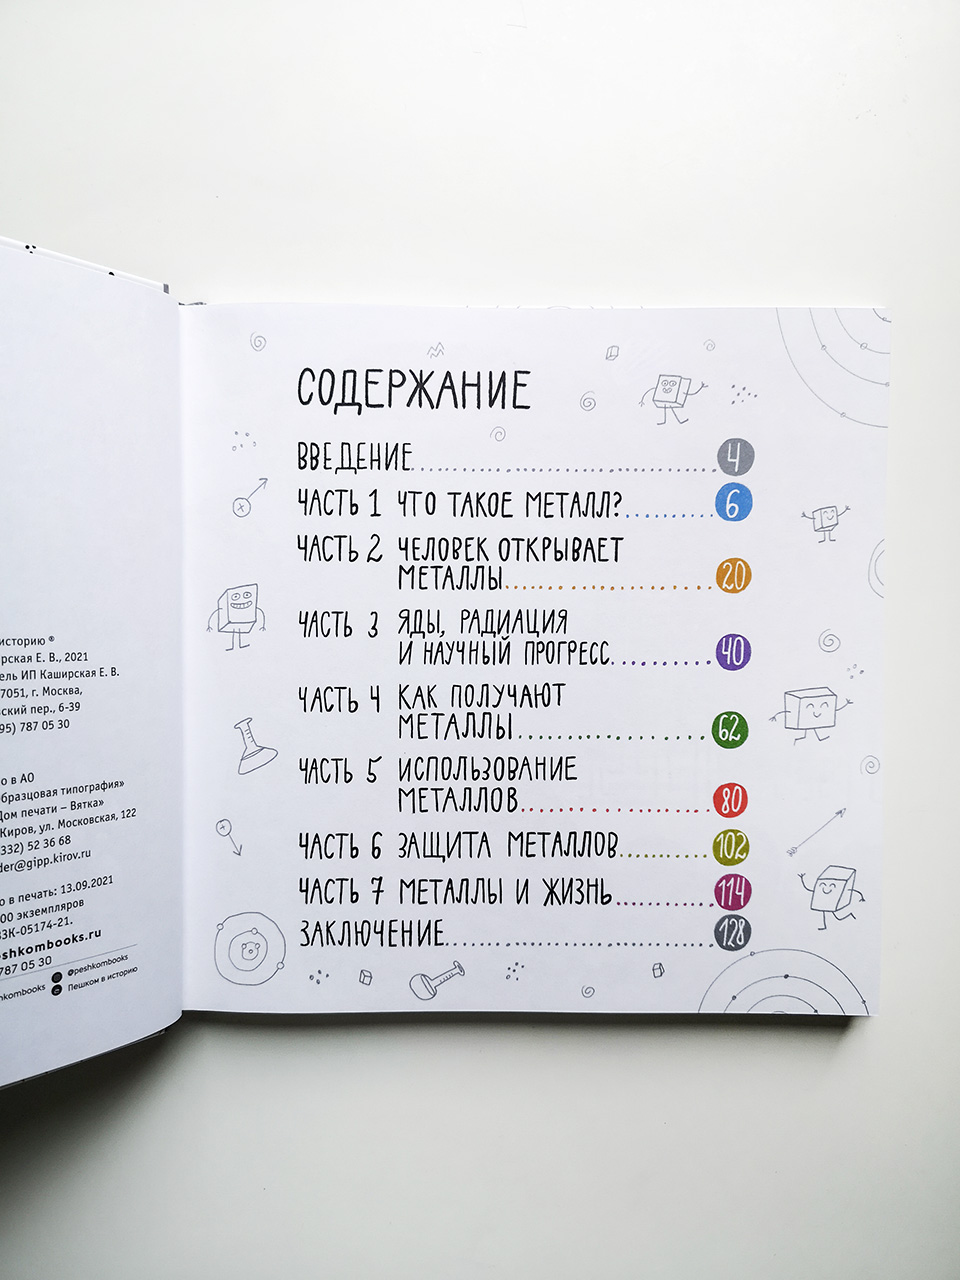 историю ®
рская Е. В., 2021
ель ИП Каширская Е. В.
7051, г. Москва,
вский пер., 6-39
95) 787 05 30
о в АО
бразцовая типография»
Дом печати – Вятка»
Киров, ул. Московская, 122
332) 52 36 68
der@gipp.kirov.ru
о в печать: 13.09.2021
00 экземпляров
ВЗК-05174-21.
eshkombooks.ru
787 05 30
hkombooks @peshkombooks
Пешком в историю
СОДЕРЖАНИЕ
ВВЕДЕНИЕ 4
ЧАСТЬ 1 ЧТО ТАКОЕ МЕТАЛЛ? 6
ЧАСТЬ 2 ЧЕЛОВЕК ОТКРЫВАЕТ
МЕТАЛЛЫ 20
ЧАСТЬ 3 ЯДЫ, РАДИАЦИЯ
И НАУЧНЫЙ ПРОГРЕСС 40
ЧАСТЬ 4 КАК ПОЛУЧАЮТ
МЕТАЛЛЫ 62
ЧАСТЬ 5 ИСПОЛЬЗОВАНИЕ
МЕТАЛЛОВ 80
ЧАСТЬ 6 ЗАЩИТА МЕТАЛЛОВ 102
ЧАСТЬ 7 МЕТАЛЛЫ И ЖИЗНЬ 114
ЗАКЛЮЧЕНИЕ 128